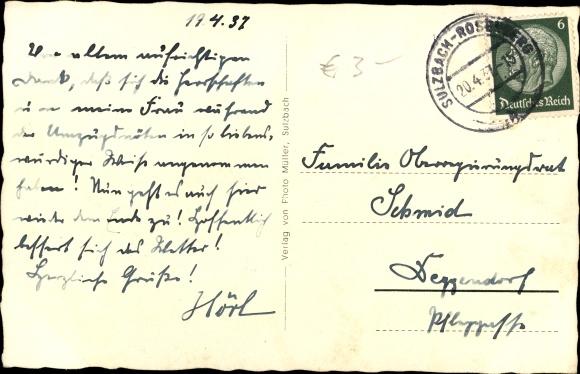 19.4.37
Vor allem aufrichtigen
Dank, daß sich die Herrschaften
um meine Frau während
des Umzugsnöten in so liebens,
würdiger Weise angenommen
haben! Nun geht es auch hier
wieder dem Ende zu! Hoffentlich
bessert sich das Wetter!
Herzliche Grüße!
Hörl
Verlag von Photo Müller, Sulzbach
€ 3-
SULZBACH-ROSENBERG
20.4.37
6
Deutsches Reich
Familie Oberregierungsrat
Schmid
Deggendorf
Pfleggasse